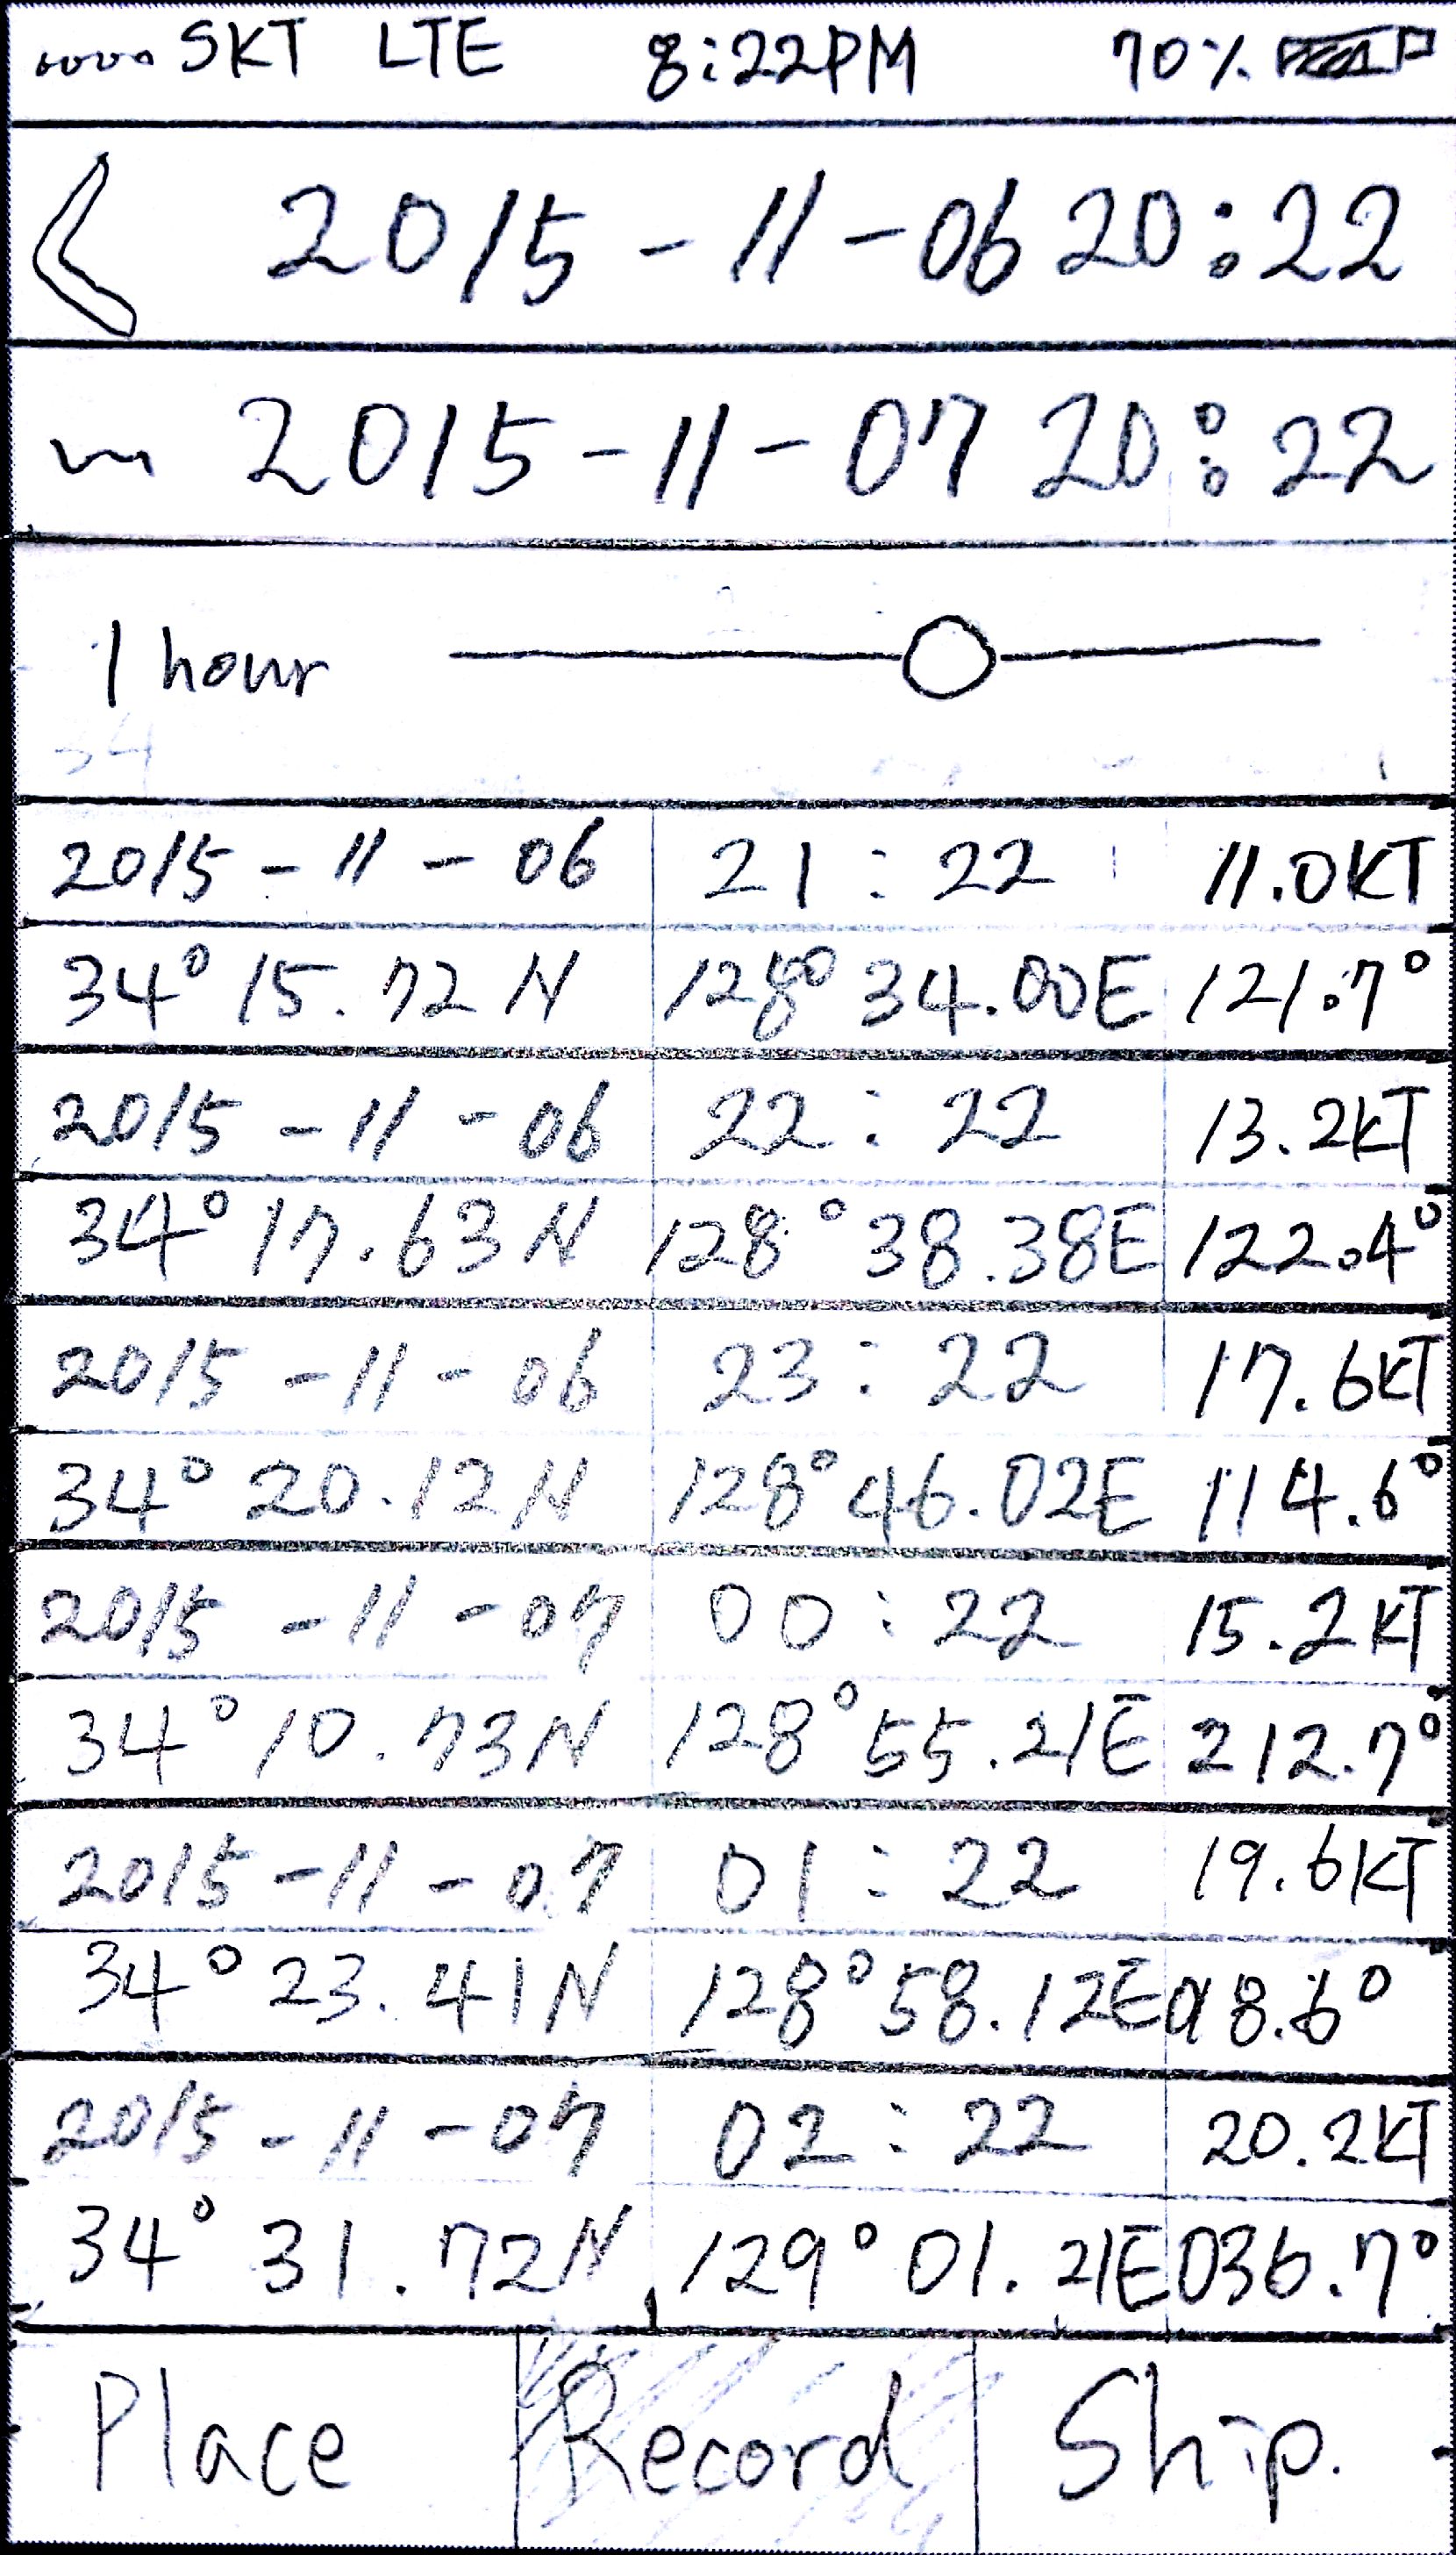 SKT LTE 8:22PM 70%
2015-11-06 20:22
~ 2015-11-07 20:22
1 hour
2015-11-06 21:22 11.0KT
34° 15.72N 128° 34.00E 121.7°
2015-11-06 22:22 13.2KT
34° 17.63N 128° 38.38E 122.4°
2015-11-06 23:22 17.6KT
34° 20.12N 128° 46.02E 114.6°
2015-11-07 00:22 15.2KT
34° 10.73N 128° 55.21E 212.7°
2015-11-07 01:22 19.6KT
34° 23.41N 128° 58.12E
2015-11-07 02:22 20.2KT
34° 31.72N 129° 01.21E 036.7°
Place Record Ship.